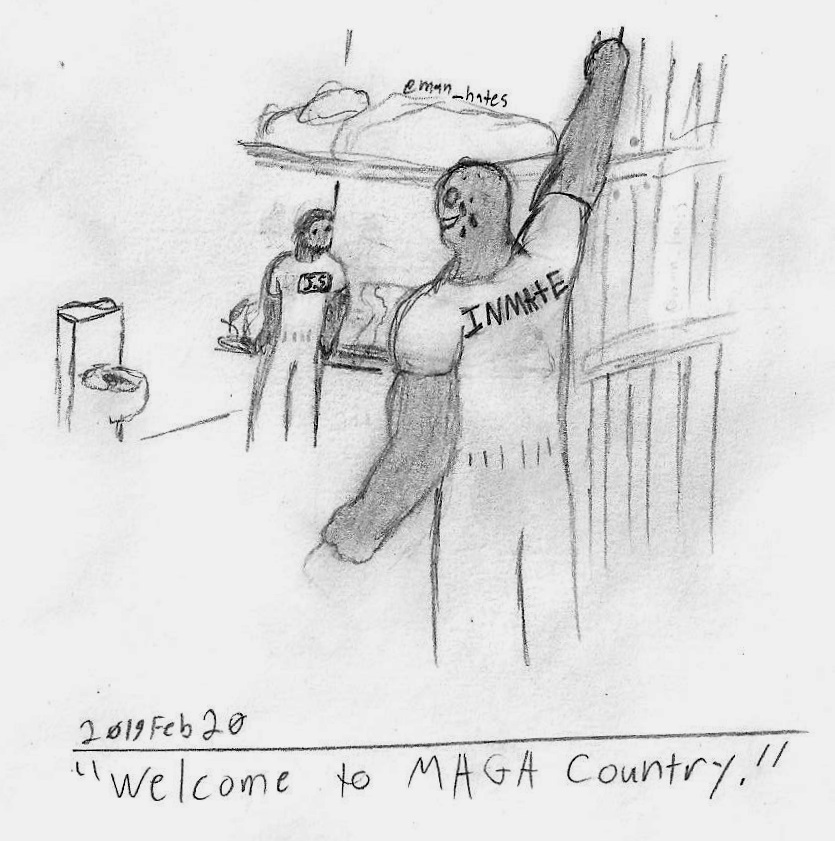 @man_hates
J.S
INMATE
2019Feb20
"Welcome to MAGA Country."